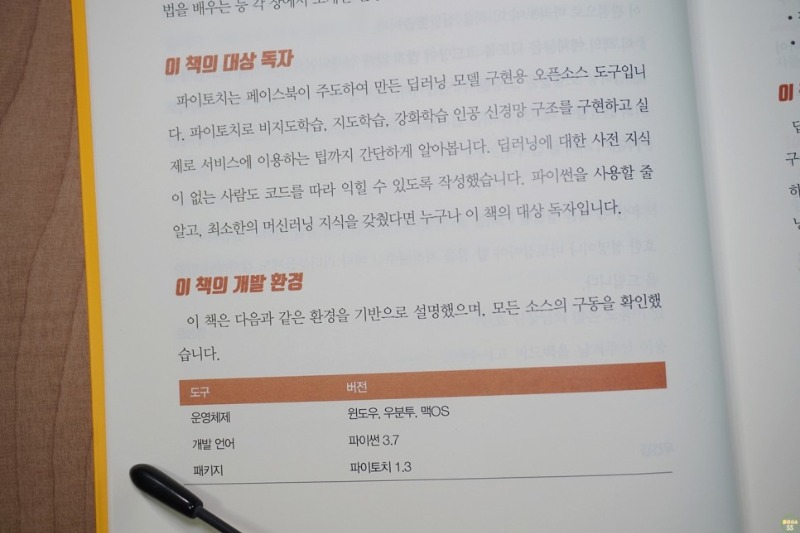 법을 배우는 등 각 장에서
이 책의 대상 독자
파이토치는 페이스북이 주도하여 만든 딥러닝 모델 구현용 오픈소스 도구입니
다. 파이토치로 비지도학습, 지도학습, 강화학습 인공 신경망 구조를 구현하고 실
제로 서비스에 이용하는 팁까지 간단하게 알아봅니다. 딥러닝에 대한 사전 지식
이 없는 사람도 코드를 따라 익힐 수 있도록 작성했습니다. 파이썬을 사용할 줄
알고, 최소한의 머신러닝 지식을 갖췄다면 누구나 이 책의 대상 독자입니다.
이 책의 개발 환경
이 책은 다음과 같은 환경을 기반으로 설명했으며, 모든 소스의 구동을 확인했
습니다.
도구 버전
운영체제 윈도우, 우분투, 맥OS
개발 언어 파이썬 3.7
패키지 파이토치 1.3